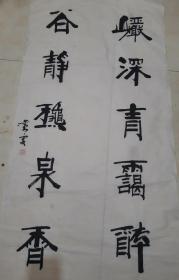 巖深青靄醉
谷靜飄泉香